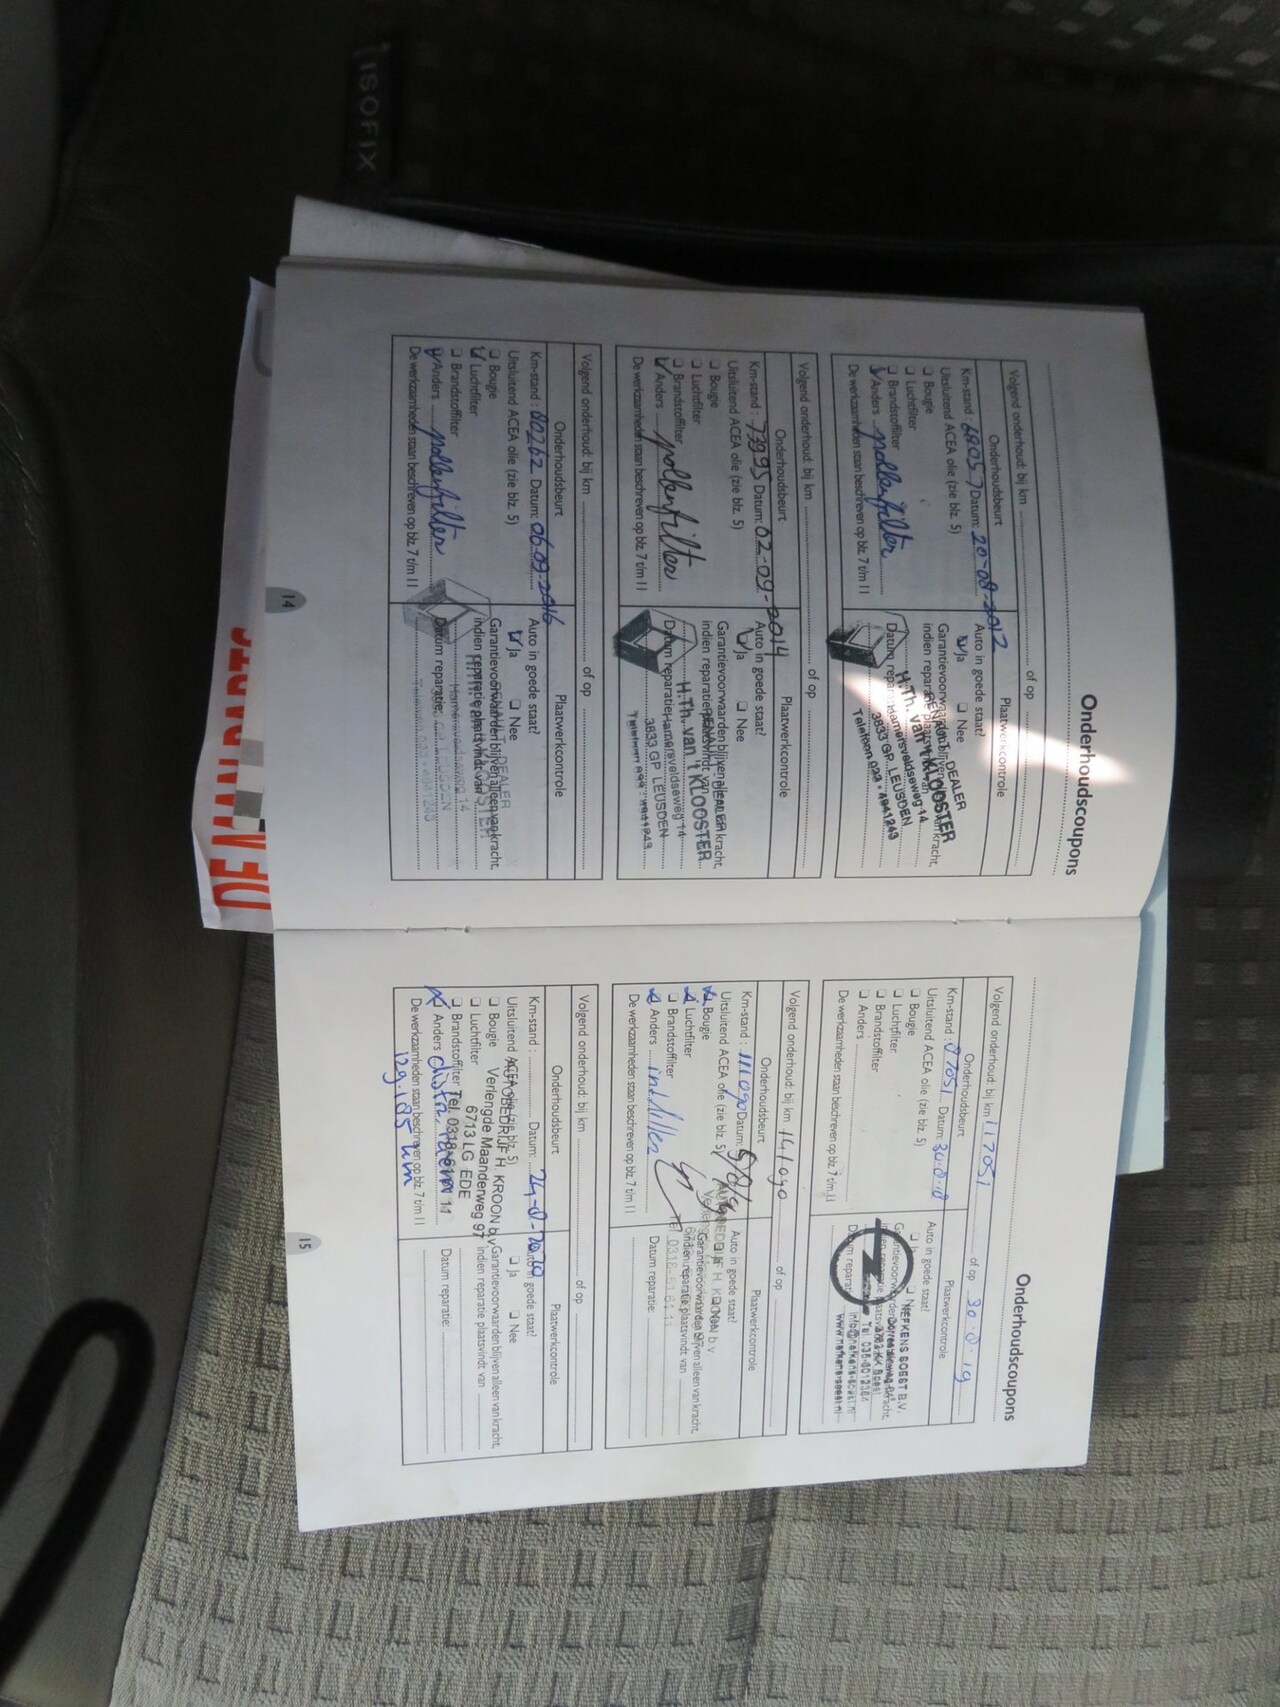 ISOFIX
Onderhoudscoupons
Volgend onderhoud: bij km of op
Onderhoudsbeurt Plaatwerkcontrole
Km-stand : 68057 Datum: 20-08-2012 Auto in goede staat?
Uitsluitend ACEA olie (zie blz. 5) Ja Nee
Bougie
Luchtfilter
Brandstoffilter
Anders pollenfilter
De werkzaamheden staan beschreven op blz. 7 t/m 11
RENAULT DEALER
H.Th. van 't KLOOSTER
Hamersveldseweg 14
3833 GP LEUSDEN
Telefoon 033 - 4941243
Volgend onderhoud: bij km of op
Onderhoudsbeurt Plaatwerkcontrole
Km-stand : 73995 Datum: 02-09-2014 Auto in goede staat?
Uitsluitend ACEA olie (zie blz. 5) Ja Nee
Bougie
Luchtfilter
Brandstoffilter
Anders pollenfilter
De werkzaamheden staan beschreven op blz. 7 t/m 11
Garantievoorwaarden blijven alleen van kracht,
indien reparatie plaatsvindt van
Datum reparatie:
H.Th. van 't KLOOSTER
Hamersveldseweg 14
3833 GP LEUSDEN
Telefoon 033 - 4941243
Volgend onderhoud: bij km of op
Onderhoudsbeurt Plaatwerkcontrole
Km-stand : 80262 Datum: 06-09-2016 Auto in goede staat?
Uitsluitend ACEA olie (zie blz. 5) Ja Nee
Bougie
Luchtfilter
Brandstoffilter
Anders pollenfilter
De werkzaamheden staan beschreven op blz. 7 t/m 11
Garantievoorwaarden blijven alleen van kracht,
indien reparatie plaatsvindt van
Datum reparatie:
14
Onderhoudscoupons
Volgend onderhoud: bij km 117051 of op 30.8.19
Onderhoudsbeurt Plaatwerkcontrole
Km-stand : 87051 Datum: 30.8.18 Auto in goede staat?
Uitsluitend ACEA olie (zie blz. 5) Nee
Bougie
Luchtfilter
Brandstoffilter
Anders
De werkzaamheden staan beschreven op blz. 7 t/m 11
NEFKENS SOEST B.V.
Volgend onderhoud: bij km 141090 of op
Onderhoudsbeurt Plaatwerkcontrole
Km-stand : 111090 Datum: Auto in goede staat?
Uitsluitend ACEA olie (zie blz. 5)
Bougie
Luchtfilter
Brandstoffilter
Anders
De werkzaamheden staan beschreven op blz. 7 t/m 11
Garantievoorwaarden blijven alleen van kracht,
indien reparatie plaatsvindt van
Datum reparatie:
H. KROON b.v.
Volgend onderhoud: bij km of op
Onderhoudsbeurt Plaatwerkcontrole
Km-stand : Datum: 24-8-2020 Auto in goede staat?
Uitsluitend ACEA olie (zie blz. 5) Ja Nee
Bougie
Luchtfilter
Brandstoffilter
Anders
De werkzaamheden staan beschreven op blz. 7 t/m 11
129.185 km
AUTOBEDRIJF H. KROON b.v.
Verlengde Maanderweg 97
6713 LG EDE
Garantievoorwaarden blijven alleen van kracht,
indien reparatie plaatsvindt van
Datum reparatie:
15